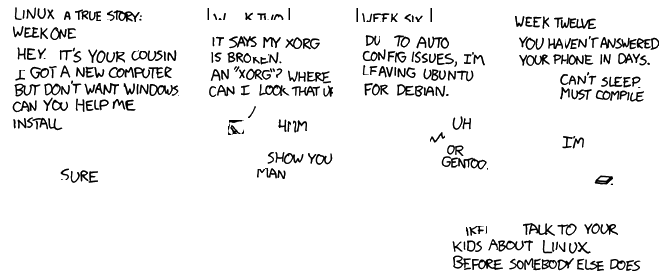 LINUX A TRUE STORY:
WEEK ONE
HEY. IT'S YOUR COUSIN
I GOT A NEW COMPUTER
BUT DON'T WANT WINDOWS.
CAN YOU HELP ME
INSTALL
SURE
IT SAYS MY XORG
IS BROKEN.
AN "XORG"? WHERE
CAN I LOOK THAT
HMM
SHOW YOU
MAN
WEEK SIX
TO AUTO
CONFIG ISSUES, I'M
LEAVING UBUNTU
FOR DEBIAN.
UH
OR
GENTOO.
WEEK TWELVE
YOU HAVEN'T ANSWERED
YOUR PHONE IN DAYS.
CAN'T SLEEP.
MUST COMPILE
I'M
TALK TO YOUR
KIDS ABOUT LINUX
BEFORE SOMEBODY ELSE DOES